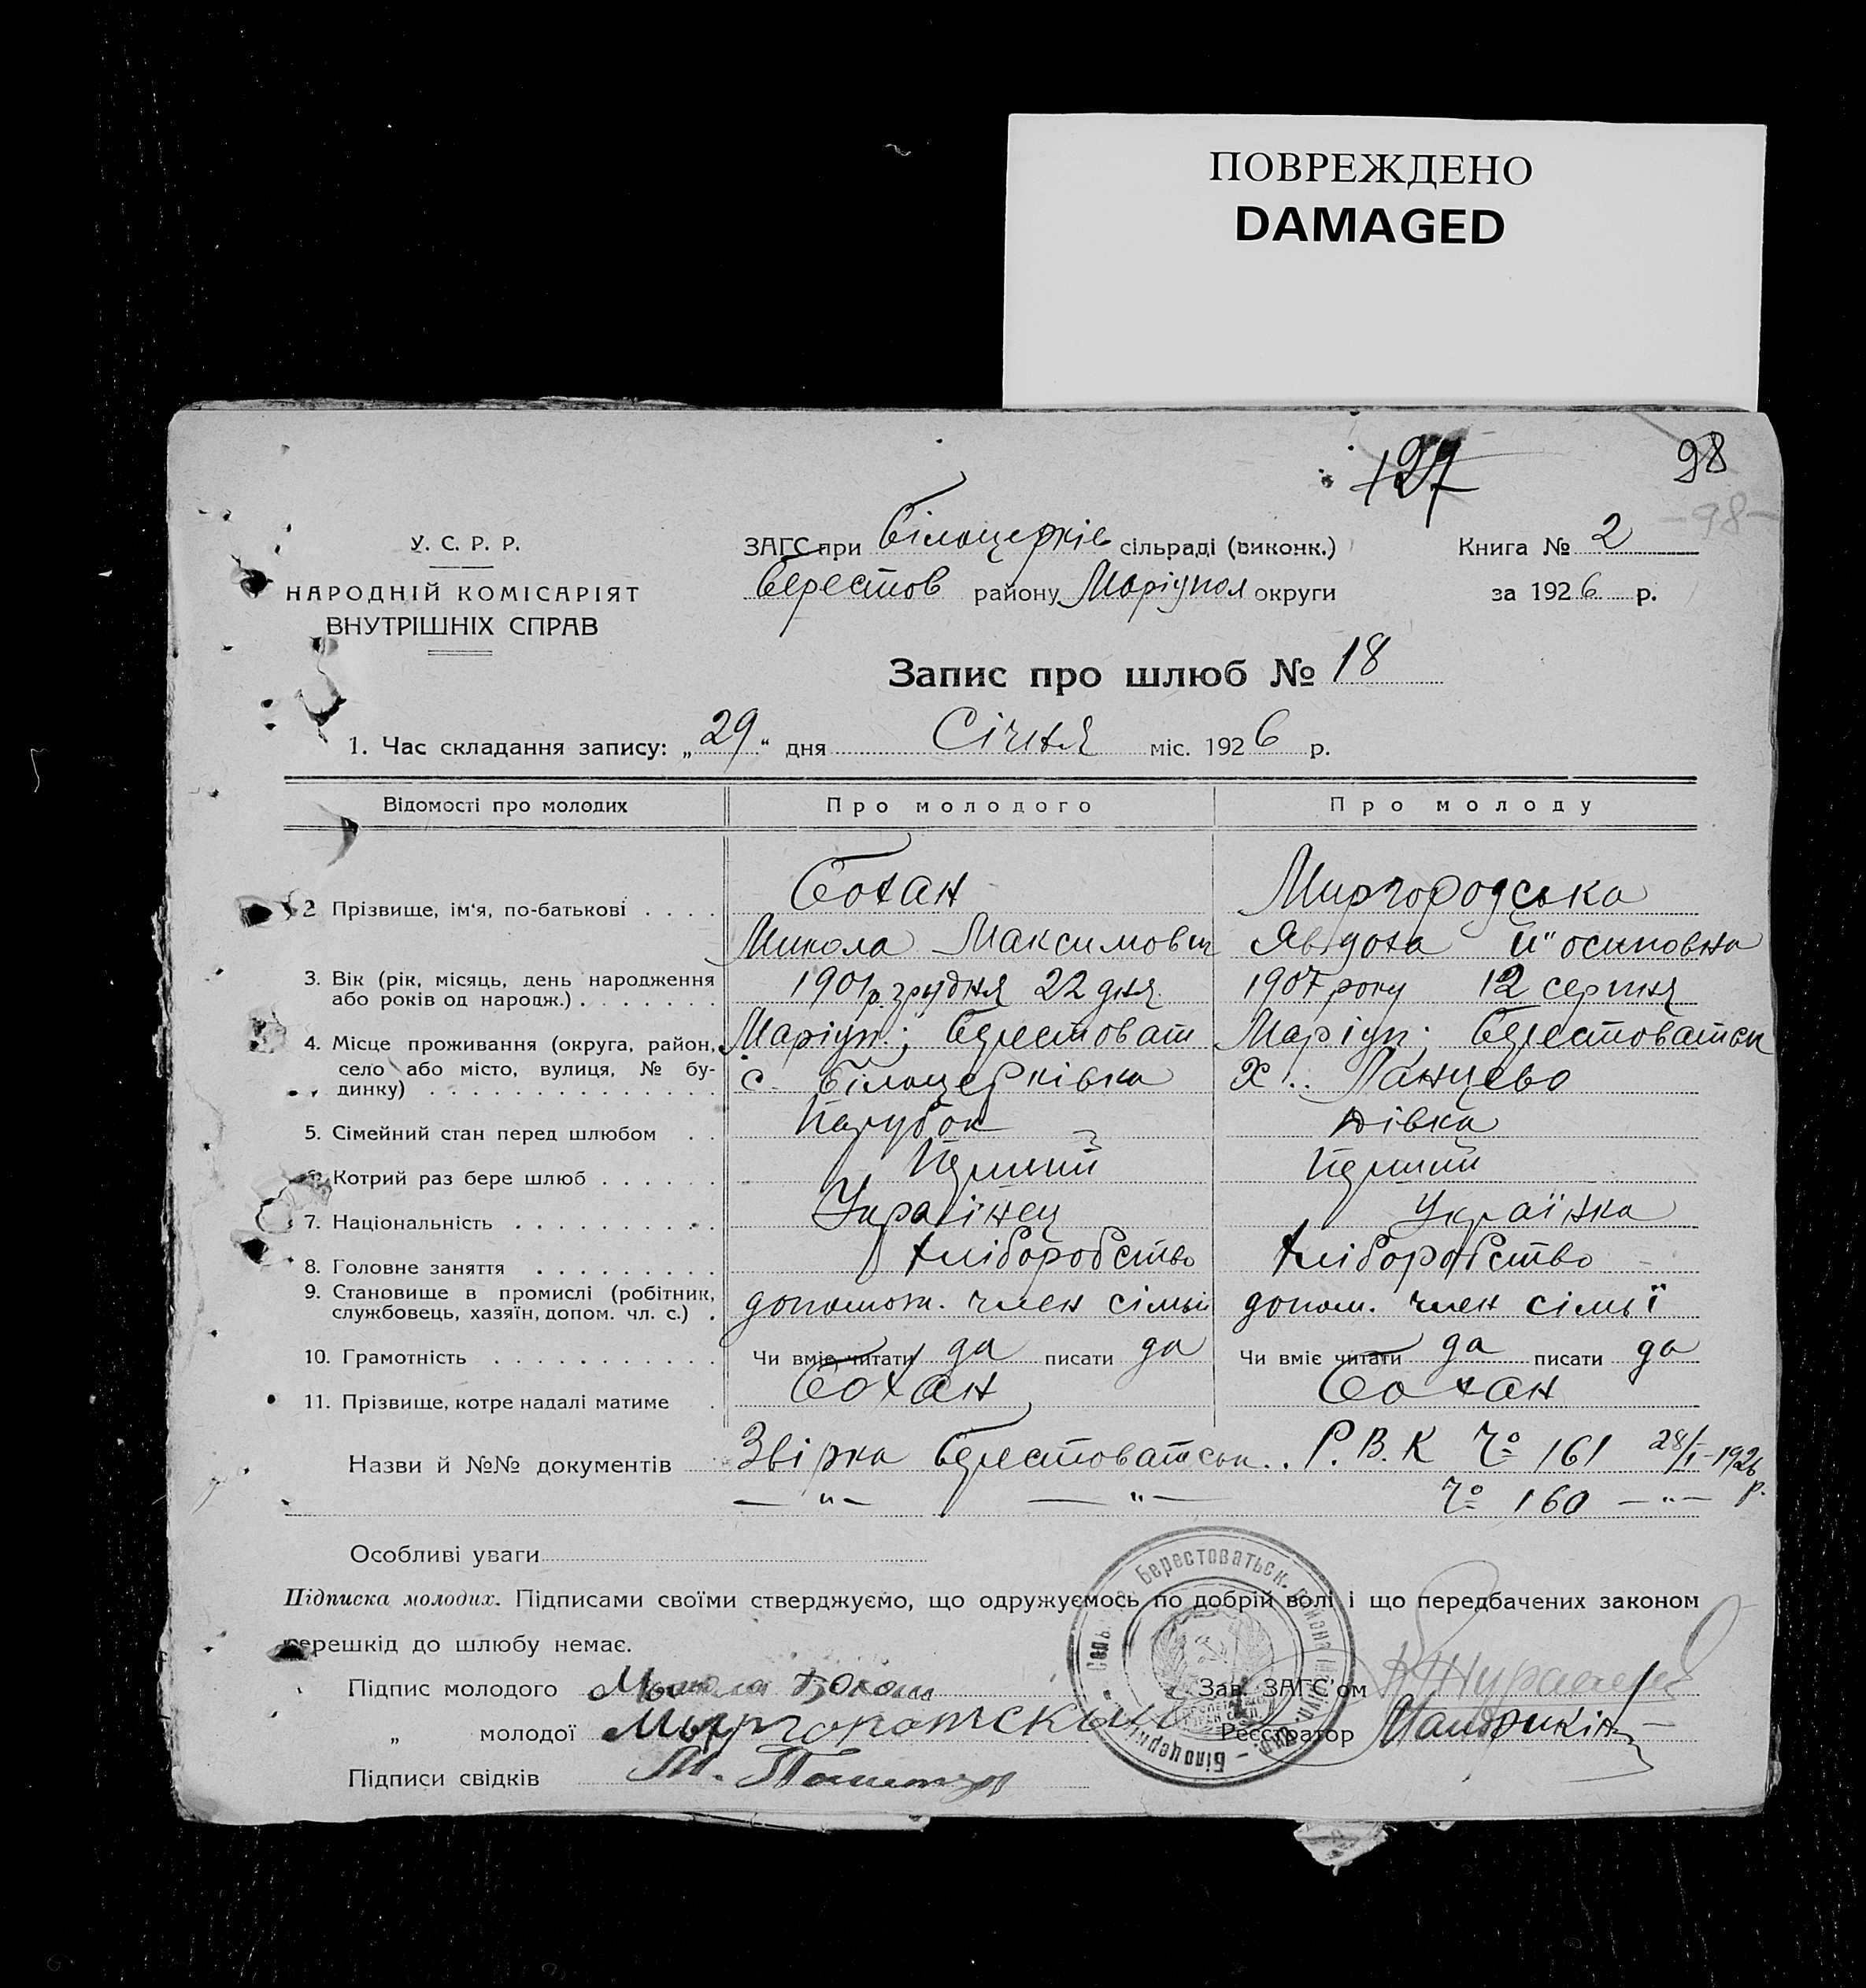 ПОВРЕЖДЕНО
DAMAGED
127
98
-98-
У. С. Р. Р.
НАРОДНІЙ КОМІСАРІЯТ
ВНУТРІШНІХ СПРАВ
ЗАГС при Білоцерків сільраді (виконк.)
Берестов району Маріупол округи
Книга № 2
за 1926 р.
Запис про шлюб № 18
1. Час складання запису: „29" дня Січня міс. 1926 р.
Відомості про молодих Про молодого Про молоду
2 Прізвище, ім'я, по-батькові . . . . Бохан Миргородська
Микола Максимович Явдоха Й"осиповна
3. Вік (рік, місяць, день народження або років од народж.) . . . . . . . 1901 р. грудня 22 дня 1907 року 12 серпня
4. Місце проживання (округа, район, село або місто, вулиця, № будинку) . . . . Маріуп.; Берестоват Маріуп; Берестоватськ
с. Білоцерківка х.. Ланцево
5. Сімейний стан перед шлюбом . . Парубок Дівка
6. Котрий раз бере шлюб . . . . . . Перший Перший
7. Національність . . . . . . . . . . Українец Українка
8. Головне заняття . . . . . . . . . Хліборобство Хліборобство
9. Становище в промислі (робітник, службовець, хазяїн, допом. чл. с.) . допомож. член сімьи допом. член сімьї
10. Грамотність . . . . . . . . . . . Чи вміє читати да писати да Чи вміє читати да писати да
11. Прізвище, котре надалі матиме . Бохан Бохан
Назви й №№ документів Звірка Берестоватськ.. Р.В.К № 161 28/I-1926 р.
— " — — " — № 160 — " —
Особливі уваги
Підписка молодих. Підписами своїми стверджуємо, що одружуємось по добрій волі і що передбачених законом
перешкід до шлюбу немає.
Підпис молодого Мыкола Бохан Зав. ЗАГС'ом
„ молодої Мыргородскы Реєстратор
Підписи свідків М.
Берестоватьск. района Маріуп. окр. Білоцерків